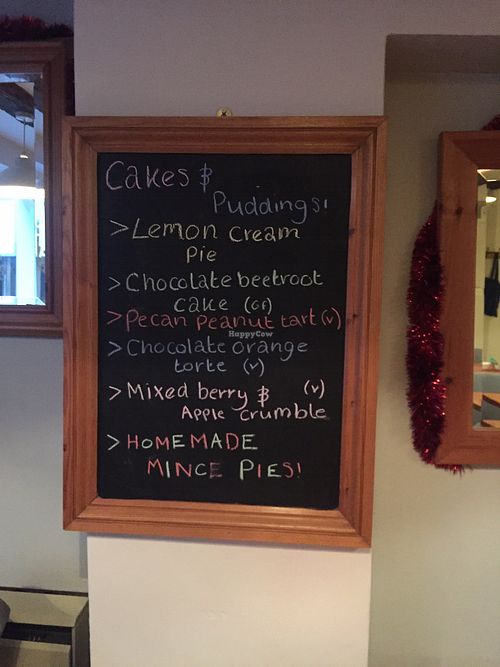 Cakes &
Puddings!
> Lemon Cream
Pie
> Chocolate beetroot
cake (GF)
> Pecan Peanut tart (v)
HappyCow
> Chocolate orange
torte (v)
> Mixed berry & (v)
Apple crumble
> HOMEMADE
MINCE PIES!